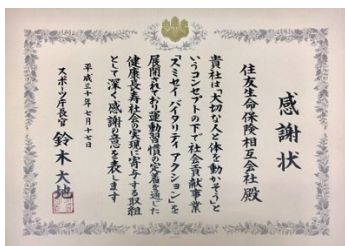 感謝状
住友生命保険相互会社殿
貴社は「大切な人と体を動かそう」と
いうコンセプトの下で社会貢献事業
「スミセイ バイタリティ アクション」を
展開されており運動習慣の定着を通じた
健康長寿社会の実現に寄与する取組
として深く感謝の意を表します
平成三十年七月十七日
スポーツ庁長官 鈴木大地